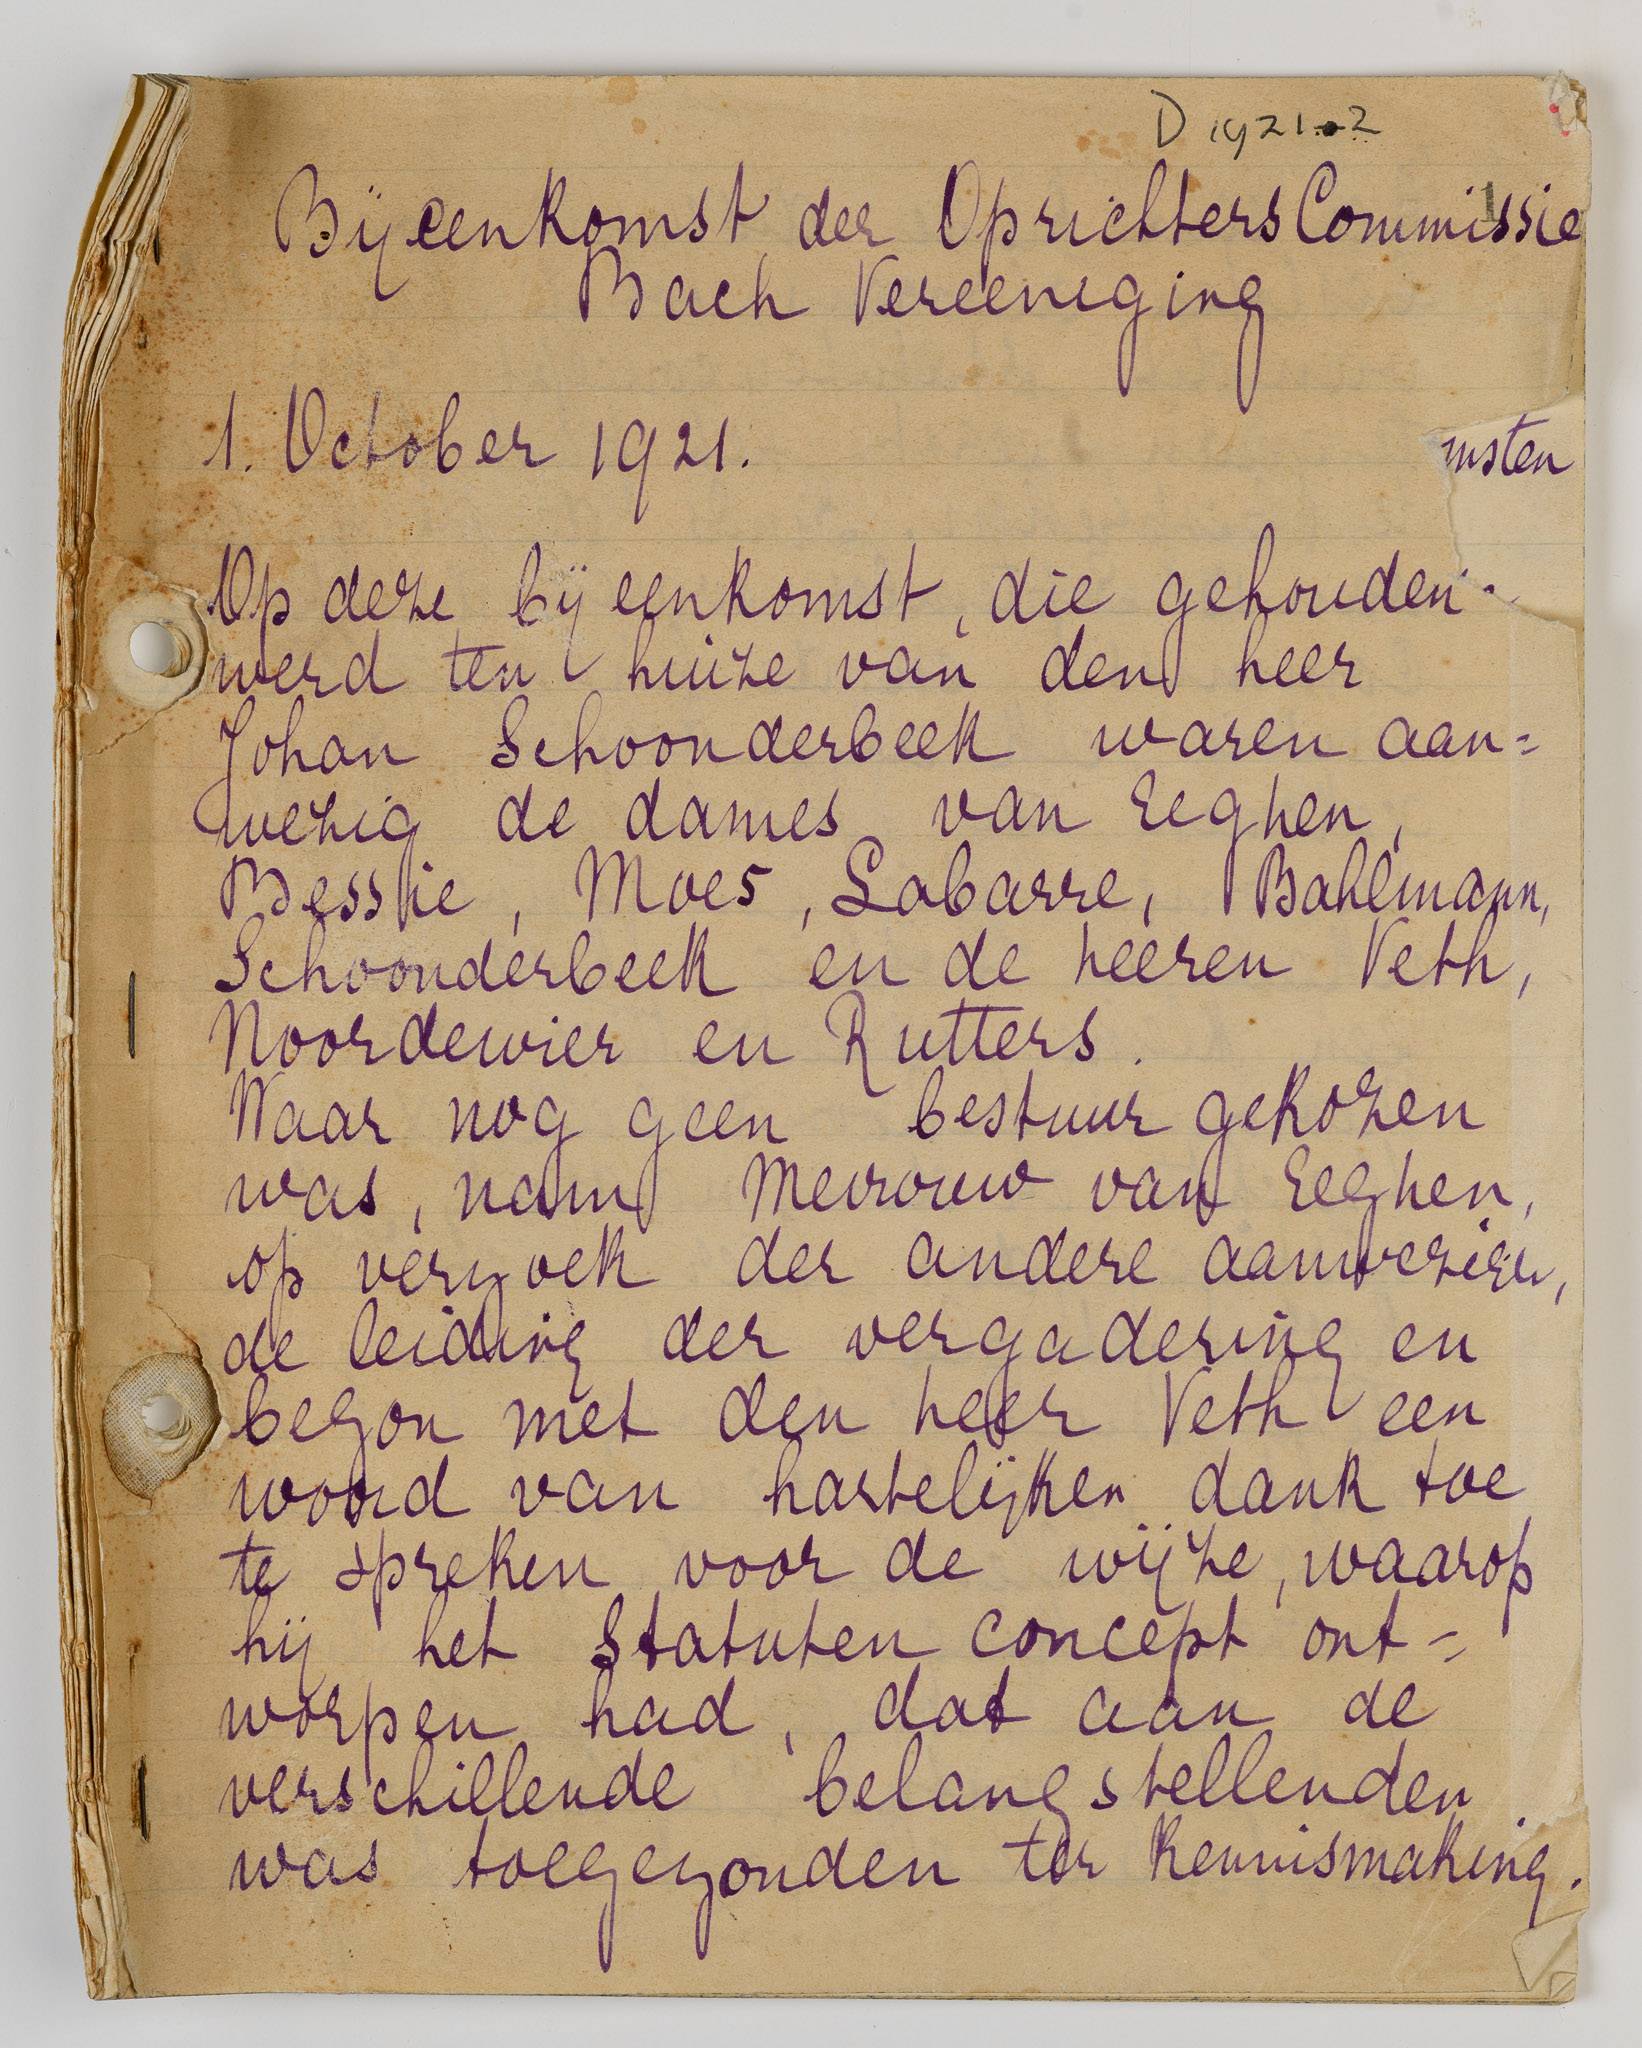 D 1921.2
1
Bijeenkomst der Oprichters Commissie
Bach Vereeniging
1. October 1921.
msten
Op deze bijeenkomst, die gehouden
werd ten huize van den heer
Johan Schoonderbeek waren aan=
wezig de dames van Eeghen,
Bessie, Moes, Labarre, Bahlmann,
Schoonderbeek en de heeren Veth,
Noordewier en Rutters.
Waar nog geen bestuur gekozen
was, nam Mevrouw van Eeghen,
op verzoek der andere aanwezigen,
de leiding der vergadering en
begon met den heer Veth een
woord van hartelijken dank toe
te spreken voor de wijze, waarop
hij het Statuten concept ont=
worpen had, dat aan de
verschillende belangstellenden
was toegezonden ter kennismaking.